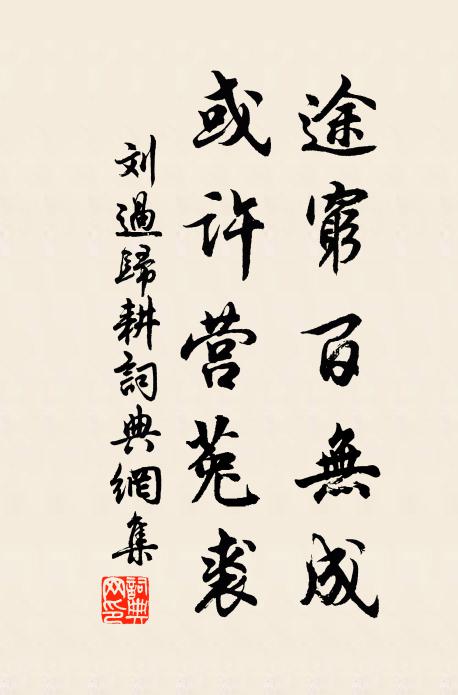 途窮百無成
或许营菟裘
刘過歸耕詞典網集
詞典网印